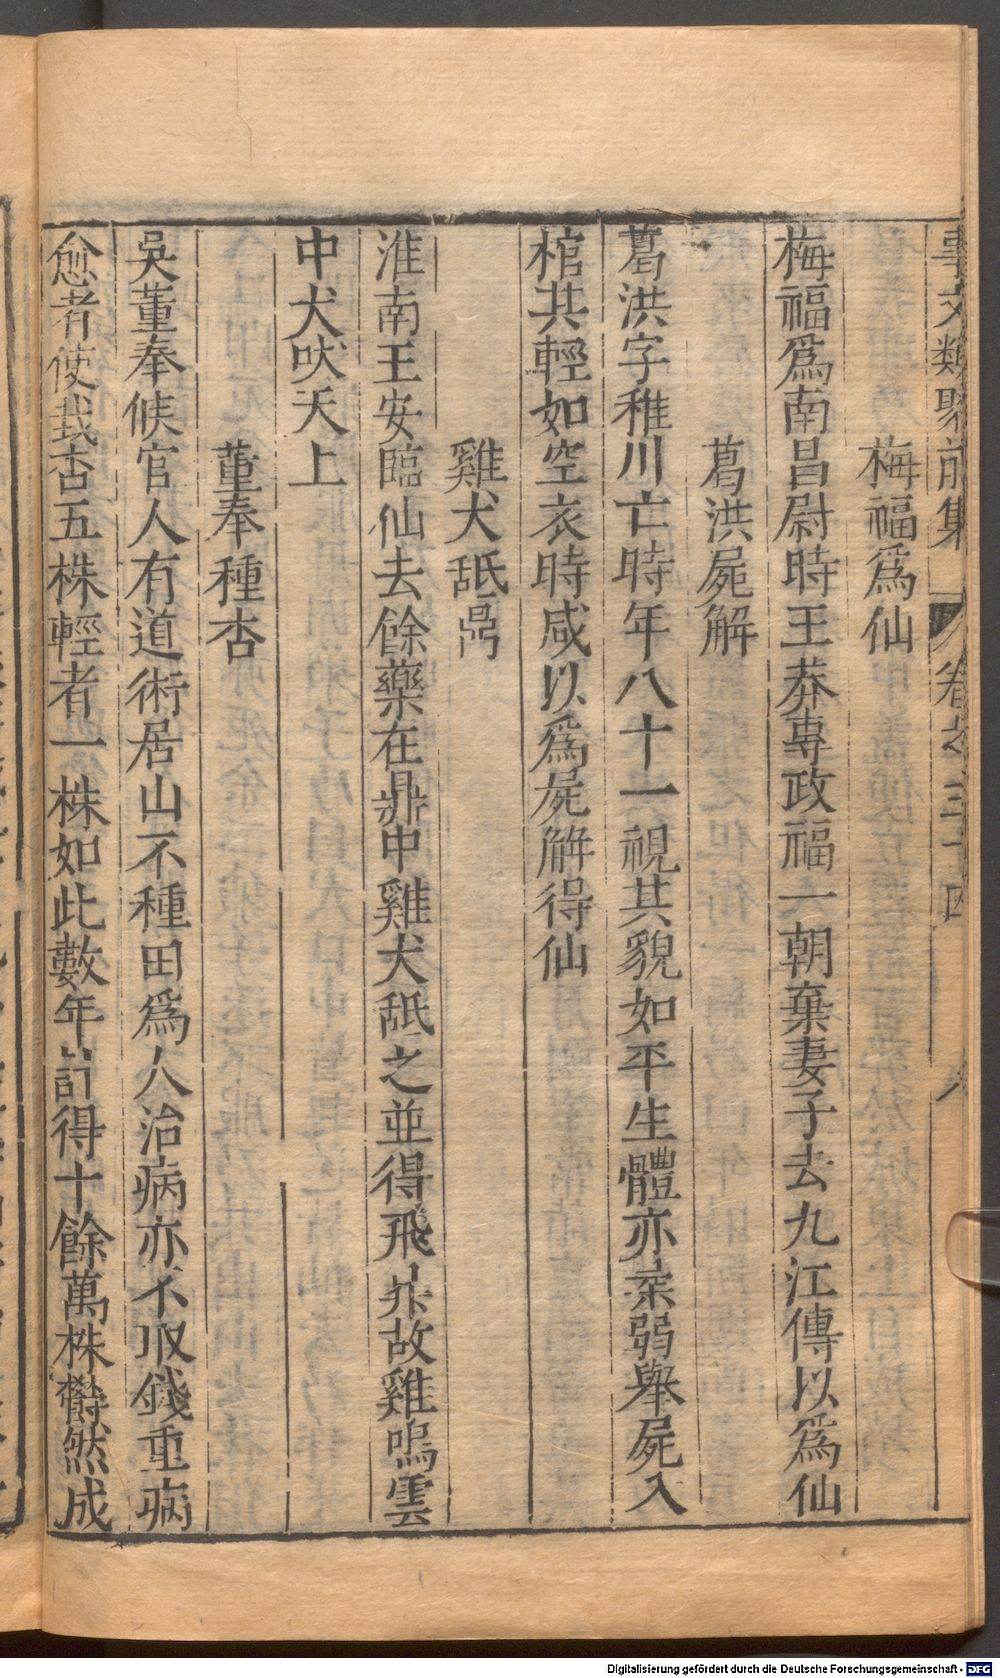 事文類聚前集 卷之三十四 八
梅福爲仙
梅福爲南昌尉時王莽專政福一朝棄妻子去九江傳以爲仙
葛洪屍解
葛洪字稚川亡時年八十一視其貌如平生體亦柔弱舉屍入
棺共輕如空衣時咸以爲屍解得仙
雞犬舐鼎
淮南王安臨仙去餘藥在鼎中雞犬舐之並得飛升故雞鳴雲
中犬吠天上
董奉種杏
吳董奉候官人有道術居山不種田爲人治病亦不取錢重病
愈者使栽杏五株輕者一株如此數年計得十餘萬株欝然成
Digitalisierung gefördert durch die Deutsche Forschungsgemeinschaft - DFG